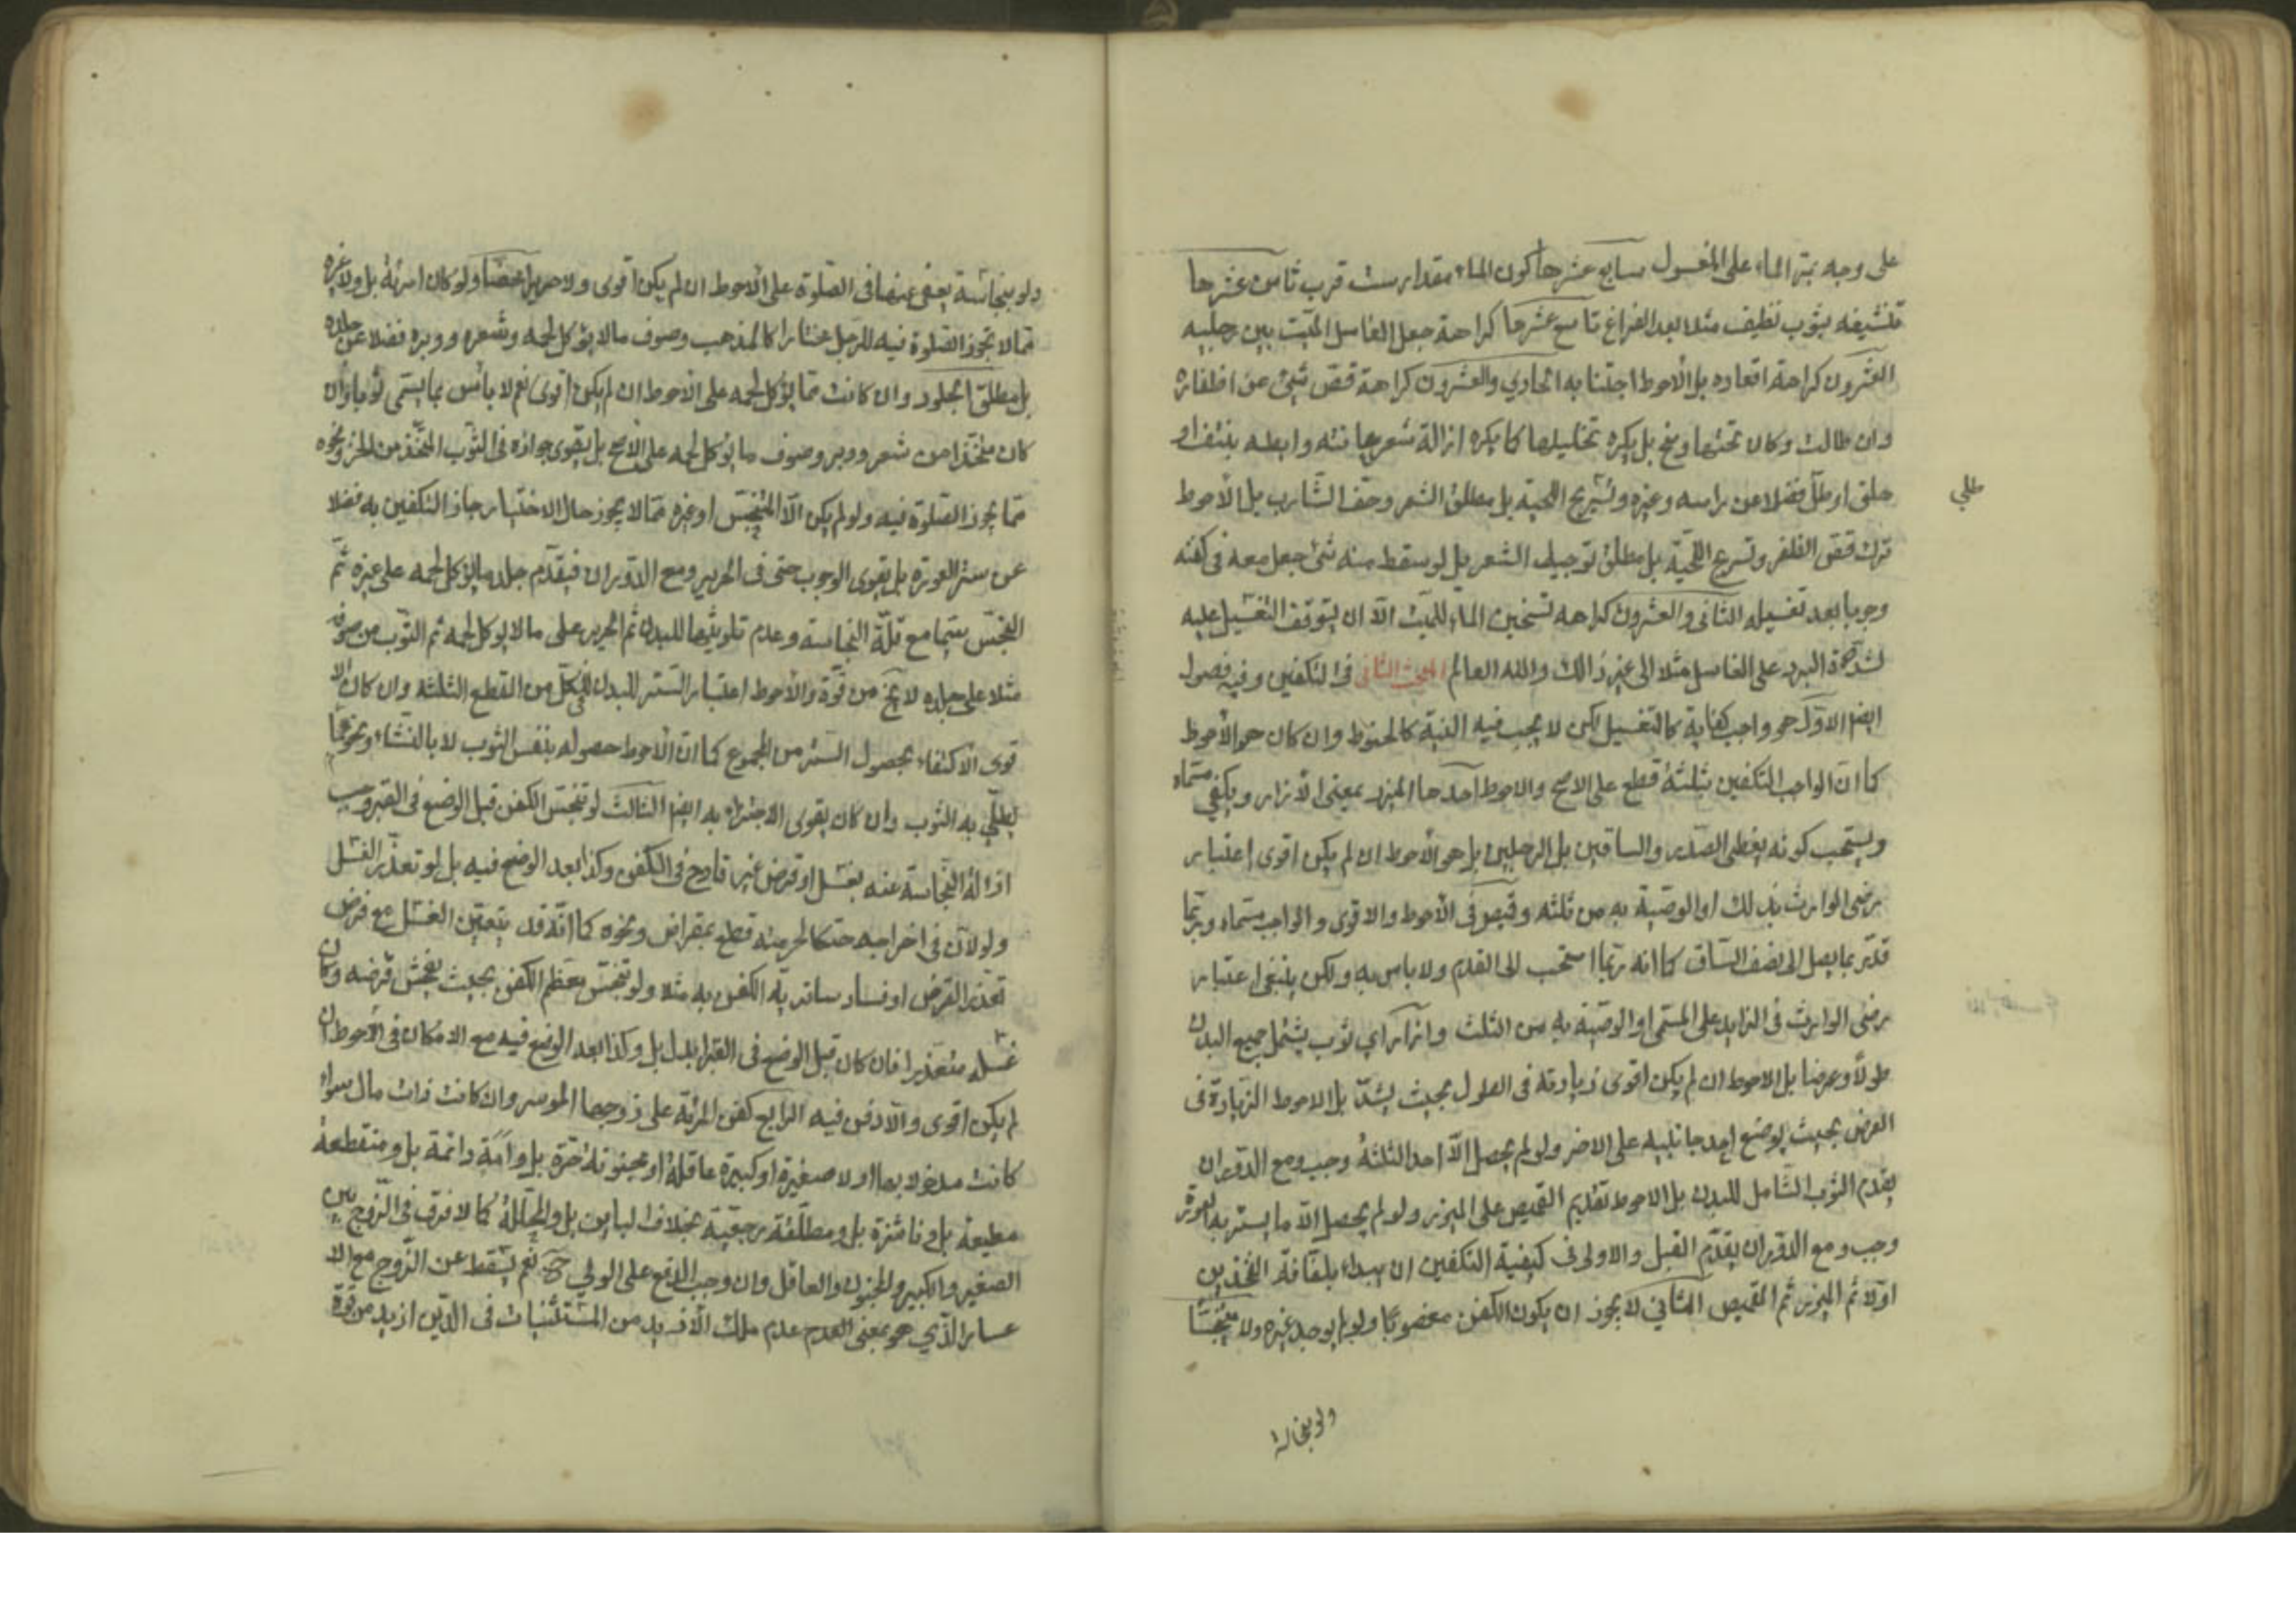 على وجه يتر الماء على المغسول سابع عشرها كون الماء مقدار ست قرب ثامن عشرها
تنشيفه بثوب نظيف مثلا بعد الفراغ تاسع عشرها كراهة جعل الغاسل الميّت بين رجليه
العشرون كراهة اقعاده بل الأحوط اجتنابه الحادي والعشرون كراهة قصّ شئ من اظفاره
وان طالت وكان تحتها وسخ بل يكره تخليلها كما يكره ازالة شعر عانته وابطه بنتف او
حلق او طلى فضلا عن راسه وغيره وتسريح اللحية بل مطلق الشعر وحفّ الشارب بل الأحوط
طلي
ترك قصّ الظفر وتسريح اللحيّة بل مطلق توجيل الشعر بل لو سقط منه شئ جعل معه في كفنه
وجوبا بعد تغسيله الثاني والعشرون كراهه تسخين الماء للميّت الّا ان يتوقف التغسيل عليه
لشدّة البرد على الغاسل مثلا الى غير ذالك والله العالم المبحث الثاني في التكفين وفيه فصول
ايضا الاوّل هو واجب كفاية كالتغسيل لكن لا يجب فيه النية كالحنوط وان كان هو الأحوط
كما انّ الواجب التكفين بثلثة قطع على الاصح والاحوط احدها المئزر بمعنى الأزار ويكفي مسمّاه
ويستحب كونه يغطى الصدر والساقين بل الرجلين بل هو الأحوط ان لم يكن اقوى اعتبار
رضى الوارث بذلك او الوصيّة به من ثلثه وقميص في الأحوط والاقوى والواجب مسمّاه وربّما
قدّر بما يصل الى نصف السّاق كما انه ربّما استحب الى القدم ولا باس به ولكن ينبغي اعتبار
رضى الوارث في الزايد على المسمّى او الوصيّة به من الثلث وازار اي ثوب يشمل جميع البدن
طولا وعرضا بل الاحوط ان لم يكن اقوى زيادته في الطول بحيث يشدّ بل الاحوط الزّيادة في
العرض بحيث يوضع احد جانبيه على الاخر ولو لم يحصل الّا احد الثلثة وجب ومع الدوران
يقدّم الثوب الشّامل للبدن بل الاحوط تقديم القميص على الميزر ولو لم يحصل الّا ما يستر به العورة
وجب ومع الدّوران يقدّم القبل والاولى في كيفية التكفين ان يبداء بلفّافة الفخذين
اوّلا ثم الميزر ثم القميص الثاني لا يجوز ان يكون الكفن مغصوبا ولو لم يوجد غيره ولا متنجّسا
ولو بنجاسة
ولو بنجاسة يعفى عنها في الصلوة على الأحوط ان لم يكن اقوى ولا حريرا محضا ولو كان امرئة بل ولا غيره
ممّا لا تجوز الصلوة فيه للرّجل كالمذهب وصوف ما لا يؤكل لحمه وشعره ووبره فضلا عن جلده
بل مطلق الجلود وان كانت ممّا يؤكل لحمه على الأحوط ان لم يكن اقوى نعم لا بأس بما يسمّى ثوبا وان
كان متّخذا من شعر ووبر وصوف ما يؤكل لحمه على الأصح بل يقوى جوازه في الثوب المتّخذ من الخز ونحوه
ممّا يجوز الصلوة فيه ولو لم يكن الّا المتنجّس او غيره ممّا لا يجوز حال الاختيار جاز التكفين به فضلا
عن ستر العورة بل يقوى الوجوب حتى في الحرير ومع الدّوران فيقدّم جلد ما يؤكل لحمه على غيره ثمّ
النجس سيّما مع قلّة النجاسة وعدم تلويثها للبدن ثم الحرير على ما لا يوكل لحمه ثم الثوب من صوفه
مثلا على جلده لا يخ من قوّة والأحوط اعتبار السّتر للبدن في كلّ من القطع الثلثة وان كان الا
قوى الأكتفاء بحصول الستر من المجموع كما انّ الأحوط حصوله بنفس الثوب لا بالنشاء ونحوه ممّا
يطلّى به الثوب وان كان يقوى الاجتزاء به ايضا الثالث لو تنجّس الكفن قبل الوضع في القبر وجب
ازالة النجاسة عنه بغسل او قرض غير قادح في الكفن وكذا بعد الوضع فيه بل لو تعذّر الغسل
ولو لأنّ في اخراجه هتكا لحرمته قطع بمقراض ونحوه كما انّه قد يتعيّن الغسل مع فرض
تعذّر القرض او فساد ساتريّة الكفن به مثلا ولو تنجّس معظم الكفن بحيث يفحش قرضه وكان
غسله متعذّرا فان كان قبل الوضع في القبر ابدل بل وكذا بعد الوضع فيه مع الامكان في الأحوط ان
لم يكن اقوى والّا دفن فيه الرابع كفن المرئة على زوجها الموسر وان كانت ذات مال سواء
كانت مدخولا بها اولا صغيرة او كبيرة عاقلة او مجنونة حرّة بل وامة دائمة بل ومنقطعة
مطيعة بل وناشزة بل ومطلّقة رجعيّة بخلاف البائن بل والمحلّلة كما لا فرق في الزّوج بين
الصغير والكبير والمجنون والعاقل وان وجب الدّفع على الولي ح نعم يسقط عن الزّوج مع الا
عسار الذّي هو بمعنى العدم عدم ملك الأزيد من المستثنيات في الدّين ازيد من قوّة